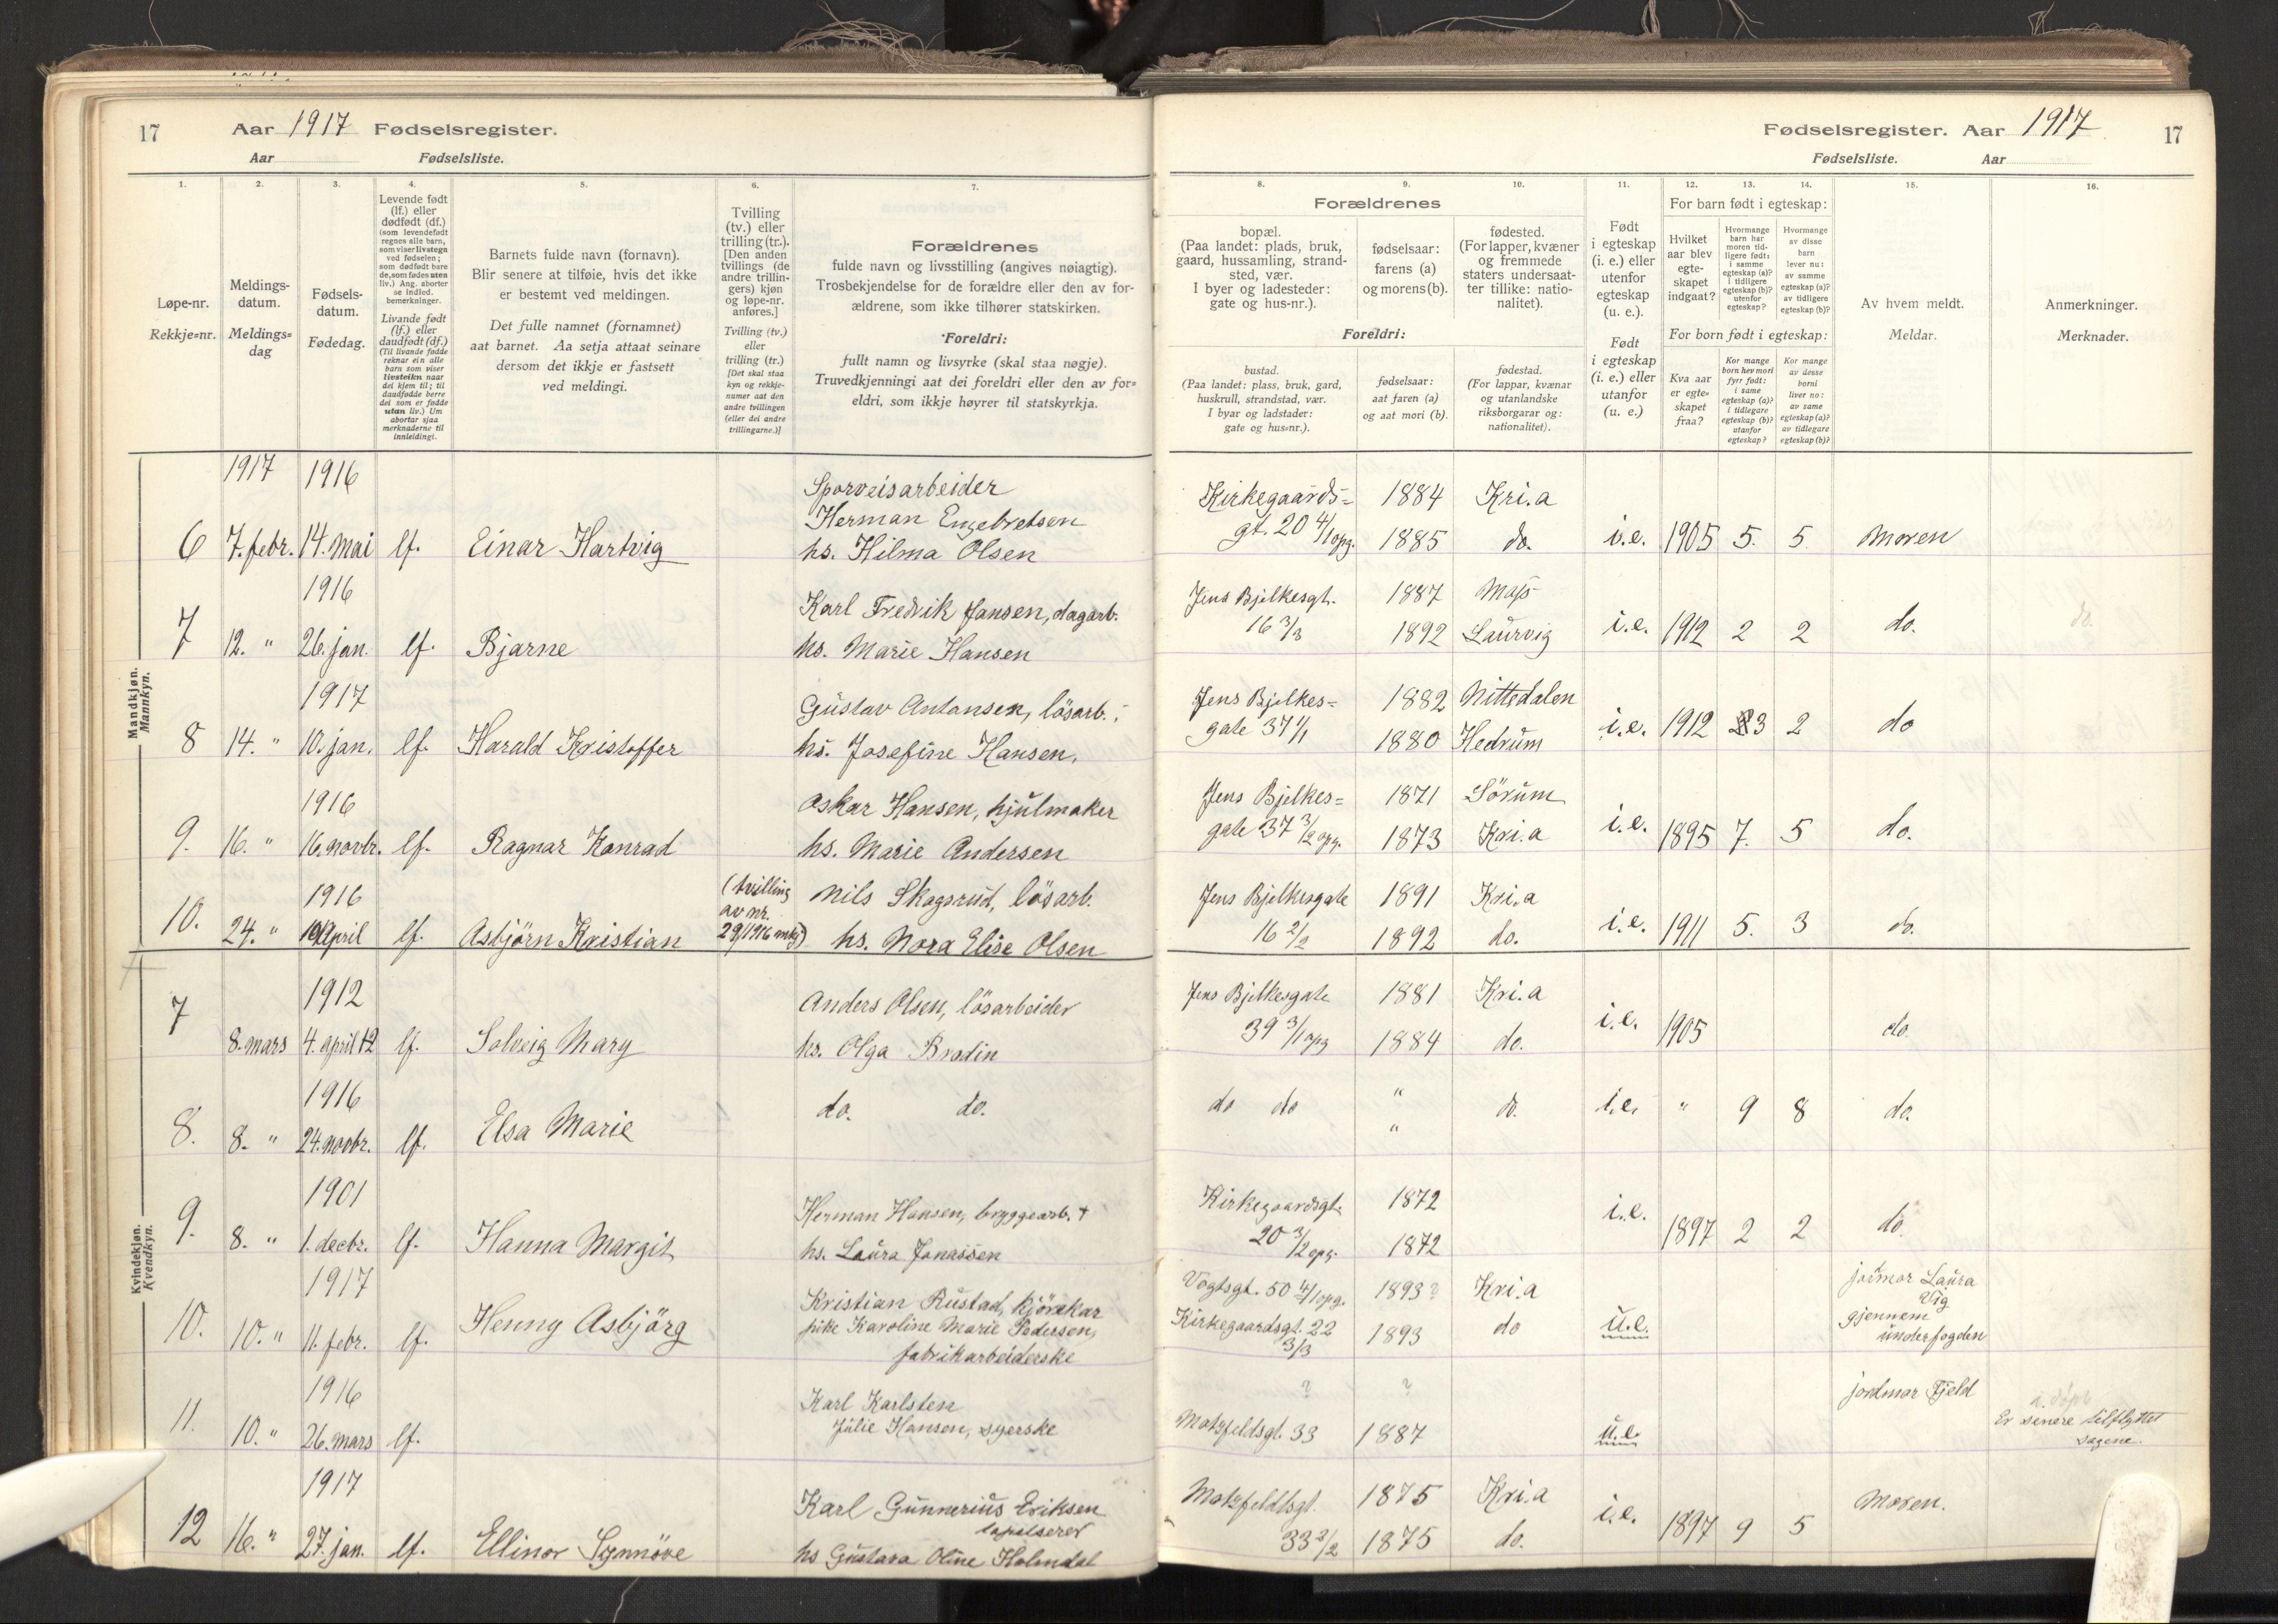 17 Aar 1917 Fødselsregister.
Aar Fødselsliste.
1. 2. 3. 4. 5. 6. 7.
Løpe-nr.
Rekkje=nr.
Meldings-
datum.
Meldings=
dag
Fødsels-
datum.
Fødedag.
Levende født
(lf.) eller
dødfødt (df.)
(som levendefødt
regnes alle barn,
som viser livstegn
ved fødselen;
som dødfødt bare
de, som fødes uten
liv.) Ang. aborter
se indled.
bemerkninger.
Livande født
(lf.) eller
daudfødt (df.)
(Til livande fødde
reknar ein alle
barn som viser
livsteikn naar
dei kjem til; til
daudfødde berre
dei som er fødde
utan liv.) Um
abortar sjaa
merknaderne til
innleidingi.
Barnets fulde navn (fornavn).
Blir senere at tilføie, hvis det ikke
er bestemt ved meldingen.
Det fulle namnet (fornamnet)
aat barnet. Aa setja attaat seinare
dersom det ikkje er fastsett
ved meldingi.
Tvilling
(tv.) eller
trilling (tr.).
[Den anden
tvillings (de
andre trillin-
gers) kjøn
og løpe-nr.
anføres.]
Tvilling (tv.)
eller
trilling (tr.)
[Det skal staa
kyn og rekkje-
numer aat den
andre tvillingen
(eller dei andre
trillingarne.)]
Forældrenes
fulde navn og livsstilling (angives nøiagtig).
Trosbekjendelse for de forældre eller den av for-
ældrene, som ikke tilhører statskirken.
Foreldri:
fullt namn og livsyrke (skal staa nøgje).
Truvedkjenningi aat dei foreldri eller den av for=
eldri, som ikkje høyrer til statskyrkja.
Mandkjøn.
Mannkyn.
1917 1916 Sporveisarbeider
Herman Engebretsen
6 7. febr. 14. mai lf. Einar Hartvig hs. Hilma Olsen
1916 Karl Fredrik Jansen, dagarb.
7 12. " 26. jan. lf. Bjarne hs. Marie Hansen
1917 Gustav Antonsen, løsarb.
8 14. " 10. jan. lf. Harald Kristoffer hs. Josefine Hansen.
1916 Oskar Hansen, hjulmaker
9. 16. " 16. novbr. lf. Ragnar Konrad hs. Marie Andersen
1916 (tvilling Nils Skagsrud, løsarb.
av nr.
10. 24. " April lf. Asbjörn Kristian 29/1916 mkj) hs. Nora Elise Olsen
Kvindekjøn.
Kvendkyn.
1912 Anders Olsen, løsarbeider
7 8. mars 4. april 12 lf. Solveig Mary hs. Olga Brodin
1916 do. do.
8. 8. " 24. novbr. lf. Elsa Marie
1901 Herman Hansen, bryggearb. +
9. 8. " 1. decbr. lf. Hanna Margit hs. Laura Jonassen
1917 Kristian Rustad, kjörekar
10. 10. " 11. febr. lf. Henny Asbjörg pike Karoline Marie Pedersen,
fabrikarbeiderske
1916 Karl Karlsten
11. 10. " 26. mars lf. Julie Hansen, syerske
1917 Karl Gunnerius Eriksen
tapetserer
12 16. " 27. jan. lf. Ellinor Synnöve hs Gustava Oline Holmdal
Fødselsregister. Aar 1917 17
Fødselsliste. Aar
8. 9. 10. 11. 12. 13. 14. 15. 16.
Forældrenes
bopæl.
(Paa landet: plads, bruk,
gaard, hussamling, strand-
sted, vær.
I byer og ladesteder:
gate og hus-nr.).
fødselsaar:
farens (a)
og morens (b).
fødested.
(For lapper, kvæner
og fremmede
staters undersaat-
ter tillike: natio-
nalitet).
Foreldri:
bustad.
(Paa landet: plass, bruk, gard,
huskrull, strandstad, vær.
I byar og ladstader:
gate og hus=nr.).
fødselsaar:
aat faren (a)
og aat mori (b).
fødestad.
(For lappar, kvænar
og utanlandske
riksborgarar og:
nationalitet).
Født
i egteskap
(i. e.) eller
utenfor
egteskap
(u. e.).
Født
i egteskap
(i. e.) eller
utanfor
(u. e.)
For barn født i egteskap:
Hvilket
aar blev
egte-
skapet
indgaat?
Hvormange
barn har
moren tid-
ligere født:
i samme
egteskap (a)?
i tidligere
egteskap (b)?
utenfor
egteskap?
Hvormange
av disse
barn
lever nu:
av samme
egteskap (a)?
av tidligere
egteskap (b)?
For born født i egteskap:
Kva aar
er egte=
skapet
fraa?
Kor mange
born hev mori
fyrr født:
i same
egteskap (a)?
i tidlegare
egteskap (b)?
utanfor
egteskap?
Kor mange
av desse
borni
liver no:
av same
egteskap (a)?
av tidlegare
egteskap (b)?
Av hvem meldt.
Meldar.
Anmerkninger.
Merknader.
Kirkegaards= 1884 Kri.a
gt. 20 4/1 opg. 1885 do. i.e. 1905 5. 5 Moren
Jens Bjelkesgt. 1887 Moss
16 3/3 1892 Laurvig i.e. 1912 2 2 do. do.
Jens Bjelkes= 1882 Nittedalen
gate 37 1/1 1880 Hedrum i.e. 1912 3 2 do
Jens Bjelkes= 1871 Sörum
gate 37 3/2 opg. 1873 Kri.a i.e. 1895 7. 5 do.
Jens Bjelkesgate 1891 Kri.a
16 2/2 1892 do. i.e. 1911 5. 3 do.
Jens Bjelkesgate 1881 Kri.a
39 3/1 opg 1884 do. i.e. 1905 do.
do do " do. i.e. " 9 8 do.
"
Kirkegaardsgt. 1872 i.e.
20 3/2 opg. 1872 1897 2 2 do.
Vogtsgt. 50 4/1 opg. 1893? Kri.a jormor Laura
Vig
Kirkegaardsgt. 22 1893 do u.e. gjennem
3/3 underfogden
? ? jordmor Fjeld
Motzfeldsgt. 33 1887 u.e. Er senere tilflyttet
Sagene.
Motzfeldtsgt. 1875 Kri.a i.e. Moren.
33 2/2 1875 do. 1897 9 5